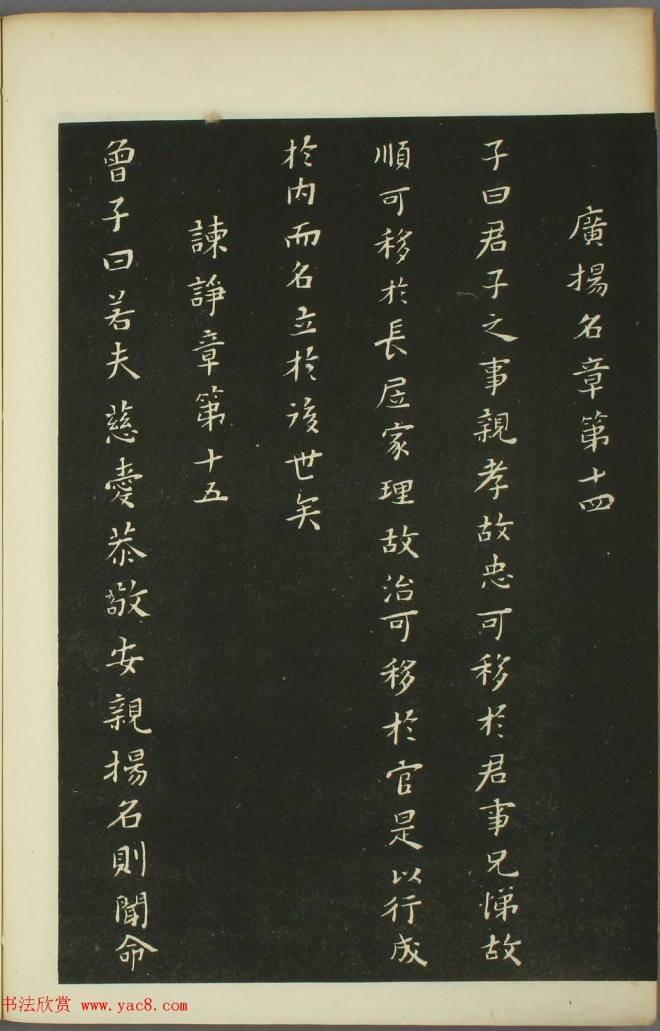 廣揚名章第十四
子曰君子之事親孝故忠可移於君事兄悌故
順可移於長居家理故治可移於官是以行成
於内而名立於後世矣
諫諍章第十五
曾子曰若夫慈愛恭敬安親揚名則聞命
书法欣赏 www.yac8.com